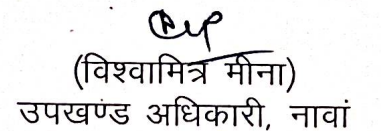 (विश्वामित्र मीना)
उपखण्ड अधिकारी, नावां